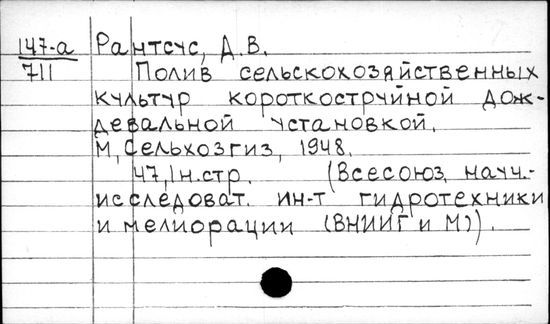 147-а Рантсус, Д.В.
711 Полив сельскохозяйственных
культур короткоструйной дож-
девальной установкой.
М, Сельхозгиз, 1948.
47,1н.стр. (Всесоюз. науч.-
исследоват. ин-т гидротехники
и мелиорации (ВНИИГ и М)).